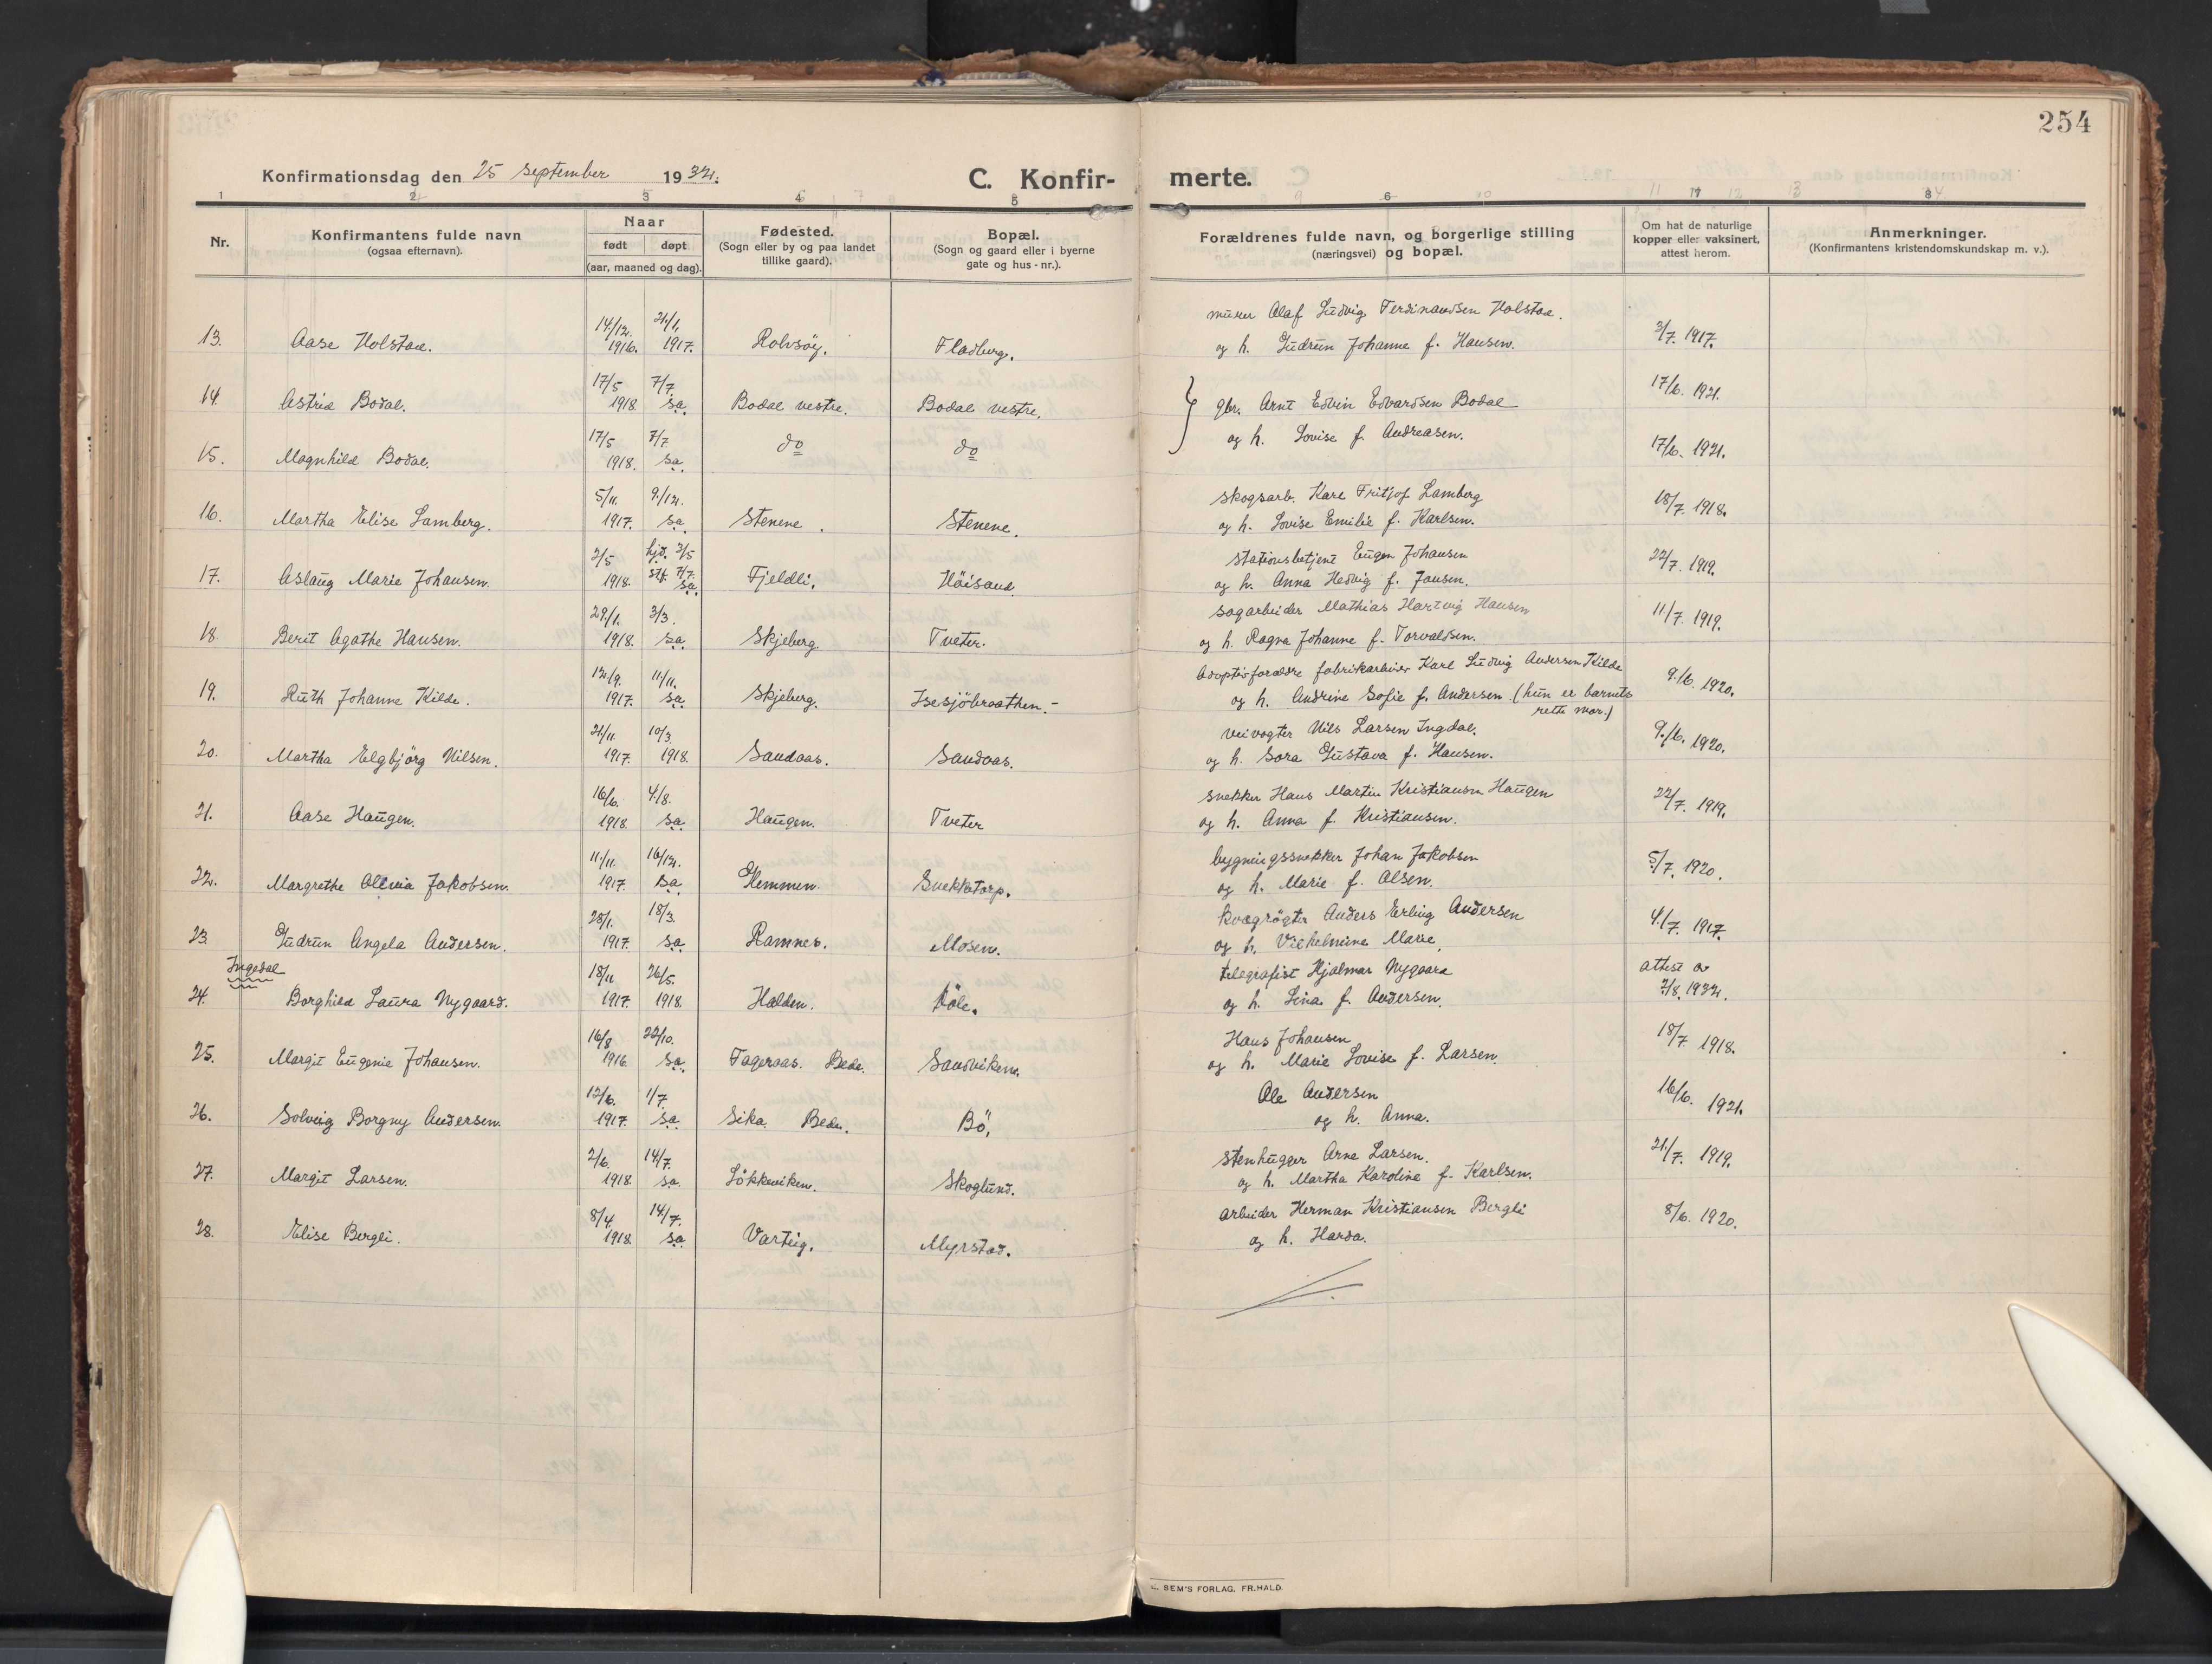 254
Konfirmationsdag den 25 september 1932.
C. Konfir- merte.
1 2 3 4 5 6 7 8
Nr.
Konfirmantens fulde navn
(ogsaa efternavn).
Naar
født døpt
(aar, maaned og dag).
Fødested.
(Sogn eller by og paa landet
tillike gaard).
Bopæl.
(Sogn og gaard eller i byerne
gate og hus-nr.).
Forældrenes fulde navn, og borgerlige stilling
(næringsvei) og bopæl.
Om hat de naturlige
kopper eller vaksinert,
attest herom.
Anmerkninger.
(Konfirmantens kristendomskundskap m. v.).
14/12. 21/1. murer Olaf Ludvig Ferdinandsen Holstad.
13. Aase Holstad. 1916. 1917. Rolvsöy. Fladberg. og h. Gudrun Johanne f. Hansen. 3/7. 1917.
17/5 7/7. 17/6. 1921.
14. Astrid Bodal. 1918. sa. Bodal vestre. Bodal vestre. gbr. Arnt Edvin Edvardsen Bodal
17/5 7/7. do do og h. Lovise f. Andreasen.
15. Magnhild Bodal. 1918. sa. 17/6. 1921.
5/11. 9/12. skogsarb. Karl Fritjof Lamberg 18/7. 1918.
16. Martha Elise Lamberg. 1917. sa. Stenene. Stenene. og h. Lovise Emilie f. Karlsen.
2/5 hjd. 3/5 stationsbetjent Eugen Johansen 22/7. 1919.
17. Aslaug Marie Johansen. 1918. stf. 7/7. sa. Fjeldli. Höisand. og h. Anna Hedvig f. Jansen.
29/1. 3/3. sagarbeider Mathias Hartvig Hansen 11/7. 1919.
18. Berit Agathe Hansen. 1918. sa. Skjeberg. Tveter. og h. Ragna Johanne f. Torvaldsen.
12/9. 11/11. Adoptivforældre fabrikarbeider Karl Ludvig Andersen Kilde 9/6. 1920.
19. Ruth Johanne Kilde. 1917. sa. Skjeberg. Isesjöbraathen.- og h. Andrine Sofie f. Andersen (hun er barnets
rette mor.)
21/11. 10/3. veivogter Nils Larsen Ingdal. 9/6. 1920.
20. Martha Elgbjörg Nilsen. 1917. 1918. Sandaas. Sandaas. og h. Sora Gustava f. Hansen.
16/6. 4/8. snekker Hans Martin Kristiansen Haugen 22/7. 1919.
21. Aase Haugen. 1918. sa. Haugen. Tveter og h. Anna f. Kristiansen.
11/11. 16/12. bygningssnekker Johan Jakobsen 5/7. 1920.
22. Margrethe Olevia Jakobsen. 1917. sa. Hemmen. Snekketorp. og h. Marie f. Olsen.
28/1. 18/3. kvægrögter Anders Erling Andersen 4/7. 1917.
23. Gudrun Angela Andersen. 1917. sa. Ramnes. Mosen. og h. Vilhelmine Marie,
Ingedal 18/11 26/5. telegrafist Hjalmar Nygaard attest av
24. Borghild Laura Nygaard. 1917. 1918. Halden. og h. Lina f. Andersen. 2/8. 1932.
16/8 22/10. Hans Johansen 18/7 1918.
25. Margit Eugenie Johansen. 1916. sa. Fageraas. Sandviken. og h. Marie Lovise f. Larsen.
12/6. 1/7. Ole Andersen 16/6. 1921.
26. Solveig Borgny Andersen. 1917. sa. Sika. Bö. og h. Anna.
2/6. 14/7. stenhugger Arne Larsen. 21/7. 1919.
27. Margit Larsen. 1918. sa. Lökkeviken. Skoglund. og h. Martha Karoline f. Karlsen.
8/4. 14/7. arbeider Herman Kristiansen Bergli 8/6. 1920.
28. Elise Bergli. 1918. sa. Varteig. Myrstad. og h. Harda.
SEM'S FORLAG. FR.HALD.